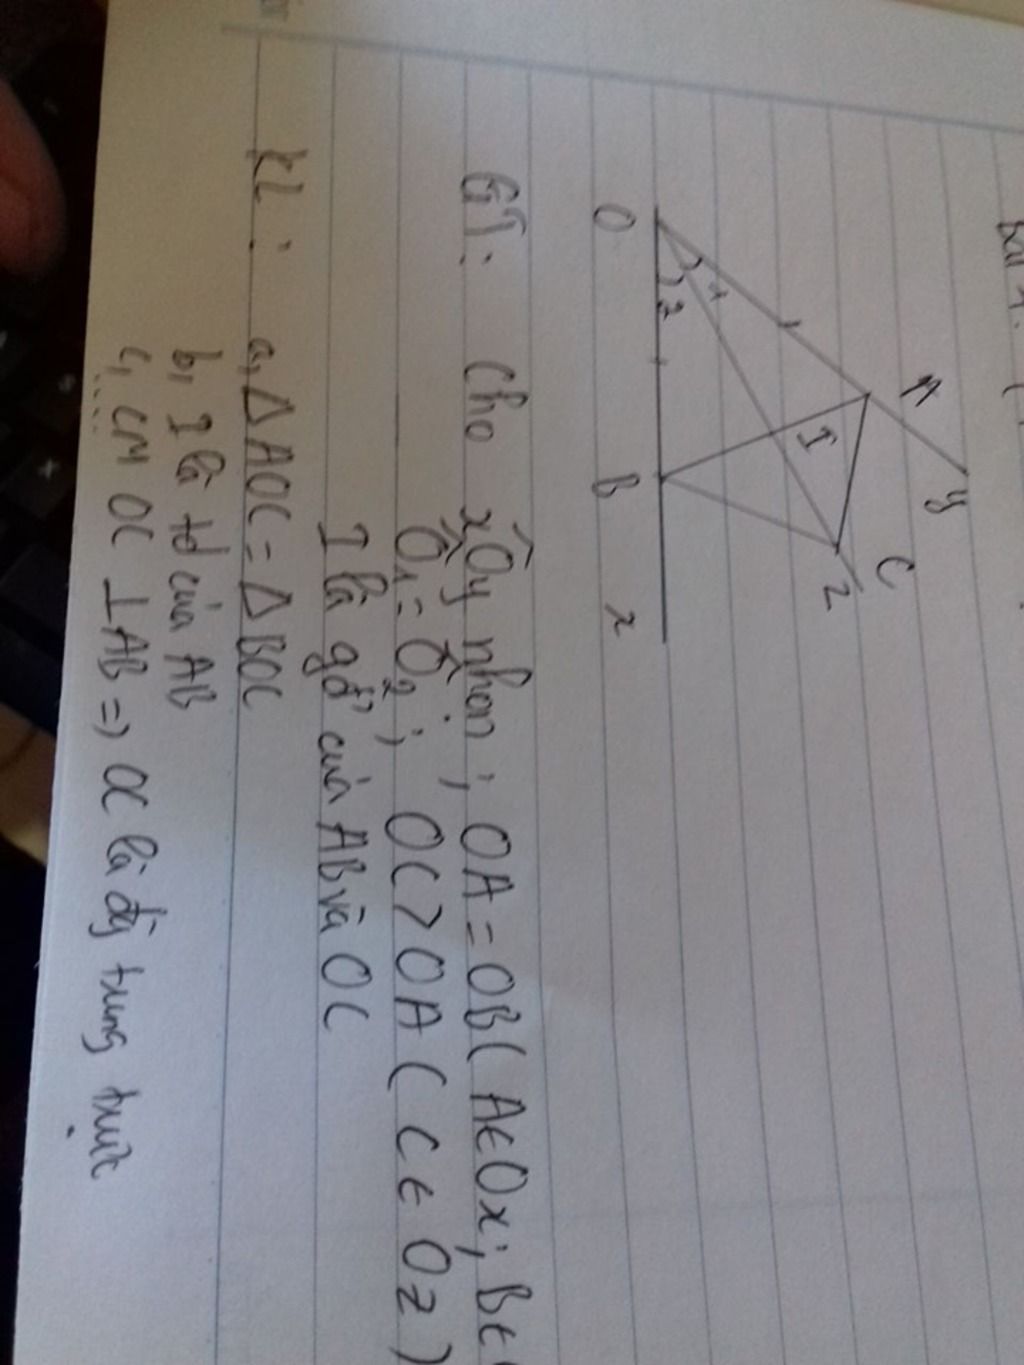 Bài 4:
A
y
1
I
C
2
z
O
B
x
GT: Cho xÔy nhọn; OA = OB (A ∈ Ox; B ∈
Ô₁ = Ô₂; OC > OA (C ∈ Oz)
I là gđ' của AB và OC
KL: a, Δ AOC = Δ BOC
b, I là tđ của AB
c, CM OC ⊥ AB => OC là đg trung trực